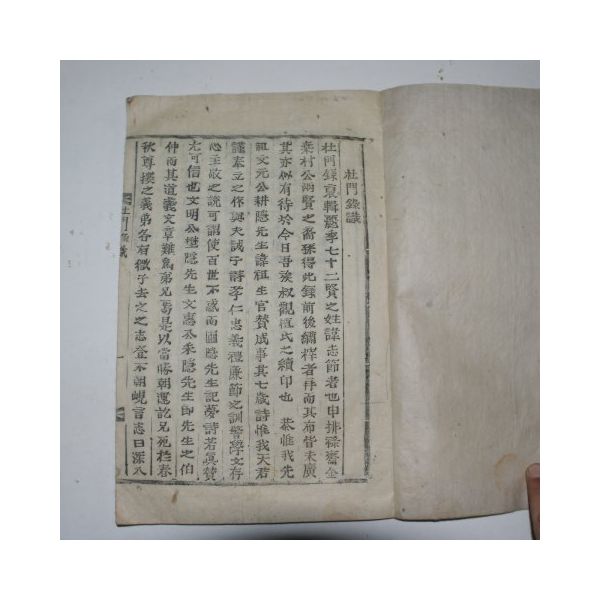 杜門錄識
杜門錄裒輯麗季七十二賢之姓諱志節者也申排祿齋金
葉村公兩賢之裔孫得此錄前後繡梓者再而其布皆未廣
其亦似有待於今日吾族叔觀植氏之續印也 恭惟我先
祖文元公耕隱先生諱祖生官贊成事其七歲詩惟我天君
謹奉立之作與天誠子詩孝仁忠義禮廉節之訓警學文存
心主敬之說可謂使百世不惑而圃隱先生記夢詩若眞贊
尤可信也文明公壄隱先生文惠公耒隱先生卽先生之伯
仲而其道義文章難爲弟兄焉是以當勝朝運訖兄死於春
秋尊攘之義弟各有微子去之之志登不朝峴言志曰深入
杜門錄識
一